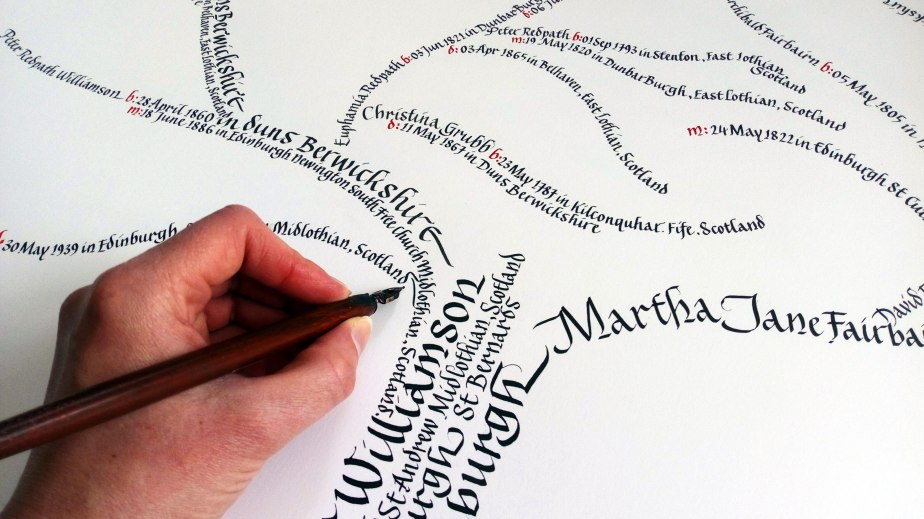 ns Berwickshire
in Belhaven, East Lothian, Scotland
Euphamia Redpath b:03 Jun 1821 in Dunbar Burg
b:06 Ju
Peter Redpath b:01 Sep 1793 in Stenton, East Lothian
Scotland
m:19 May 1820 in Dunbar Burgh, East Lothian, Scotland
d: 03 Apr 1865 in Belhaven, East Lothian, Scotland
Fairbairn b:05 May 1805 in
m: 24 May 1822 in Edinburgh St Cu
Peter Redpath Williamson b:28 April 1860 in Duns Berwickshire
m:18 June 1886 in Edinburgh Newington South Free Church Midlothian, Scotland
Christina Grubb b:23 May 1787 in Kilconquhar. Fife. Scotland
d:11 May 1867 in Duns Berwickshire
30 May 1939 in Edinburgh Midlothian, Scotland
Williamson
St Andrew Midlothian Scotland
urgh St Bernards
burgh
Martha Jane Fairba
David